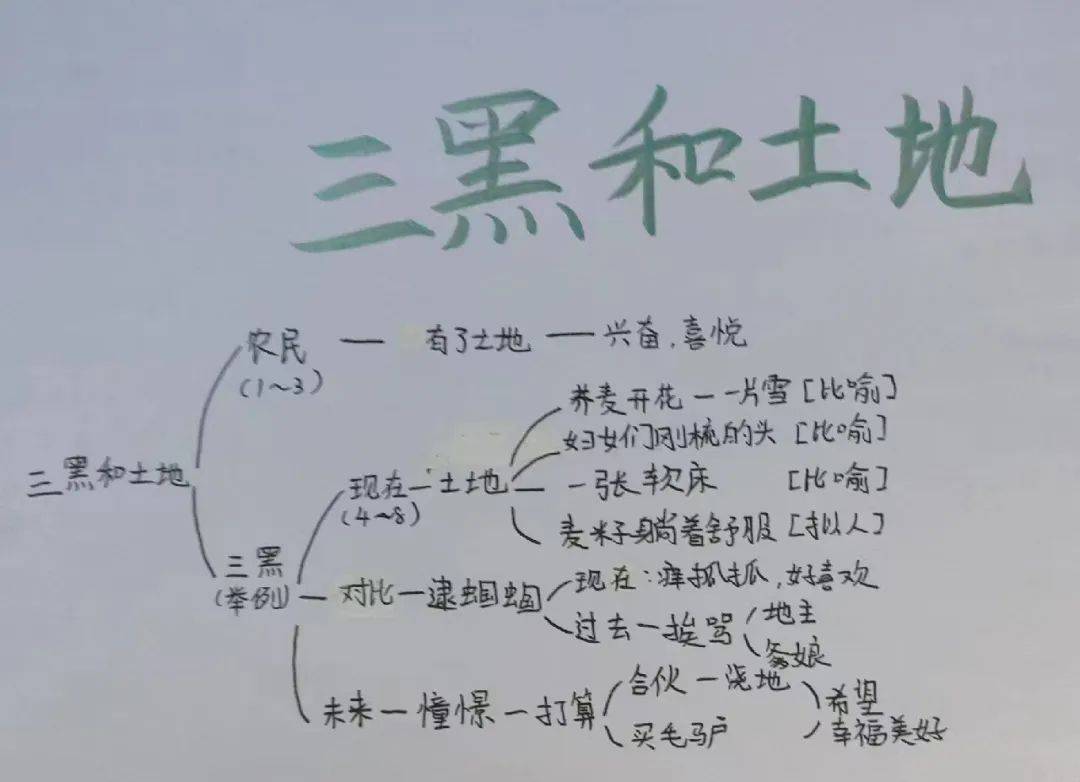 三黑和土地
农民 — 有了土地 — 兴奋,喜悦
(1~3)
荞麦开花 — 一片雪 [比喻]
妇女们刚梳的头 [比喻]
三黑和土地
现在 — 土地
(4~8)
一张软床 [比喻]
麦籽躺着舒服 [拟人]
三黑
(举例)
对比 — 逮蝈蝈
现在:痒抓抓,好喜欢
过去 — 挨骂
地主
爹娘
未来 — 憧憬 — 打算
合伙 — 浇地
买毛驴
希望
幸福美好